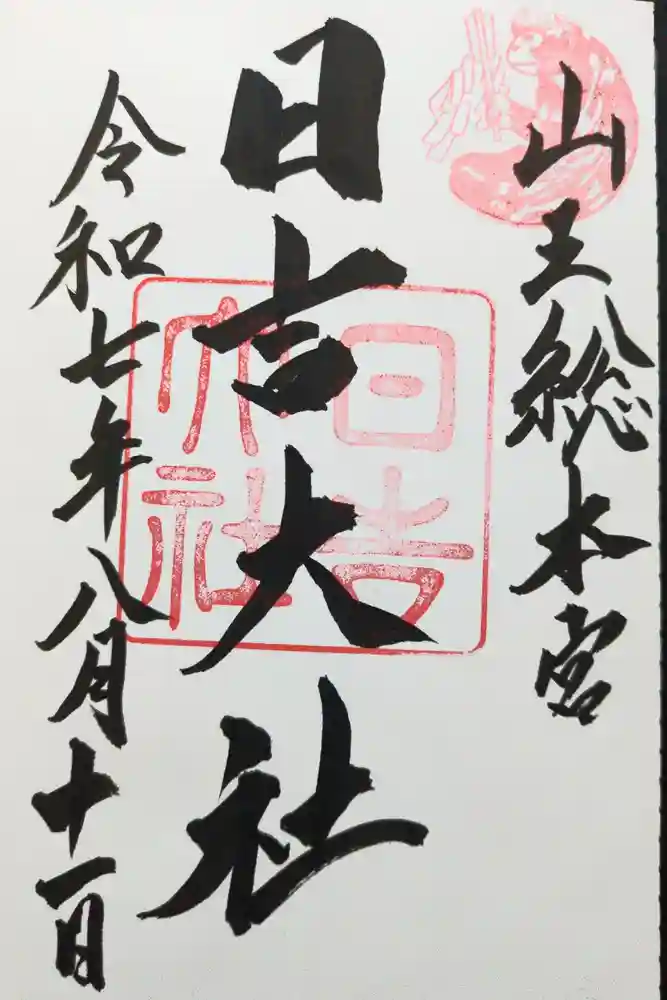 山王総本宮
日吉大社
日吉大社
令和七年八月十一日